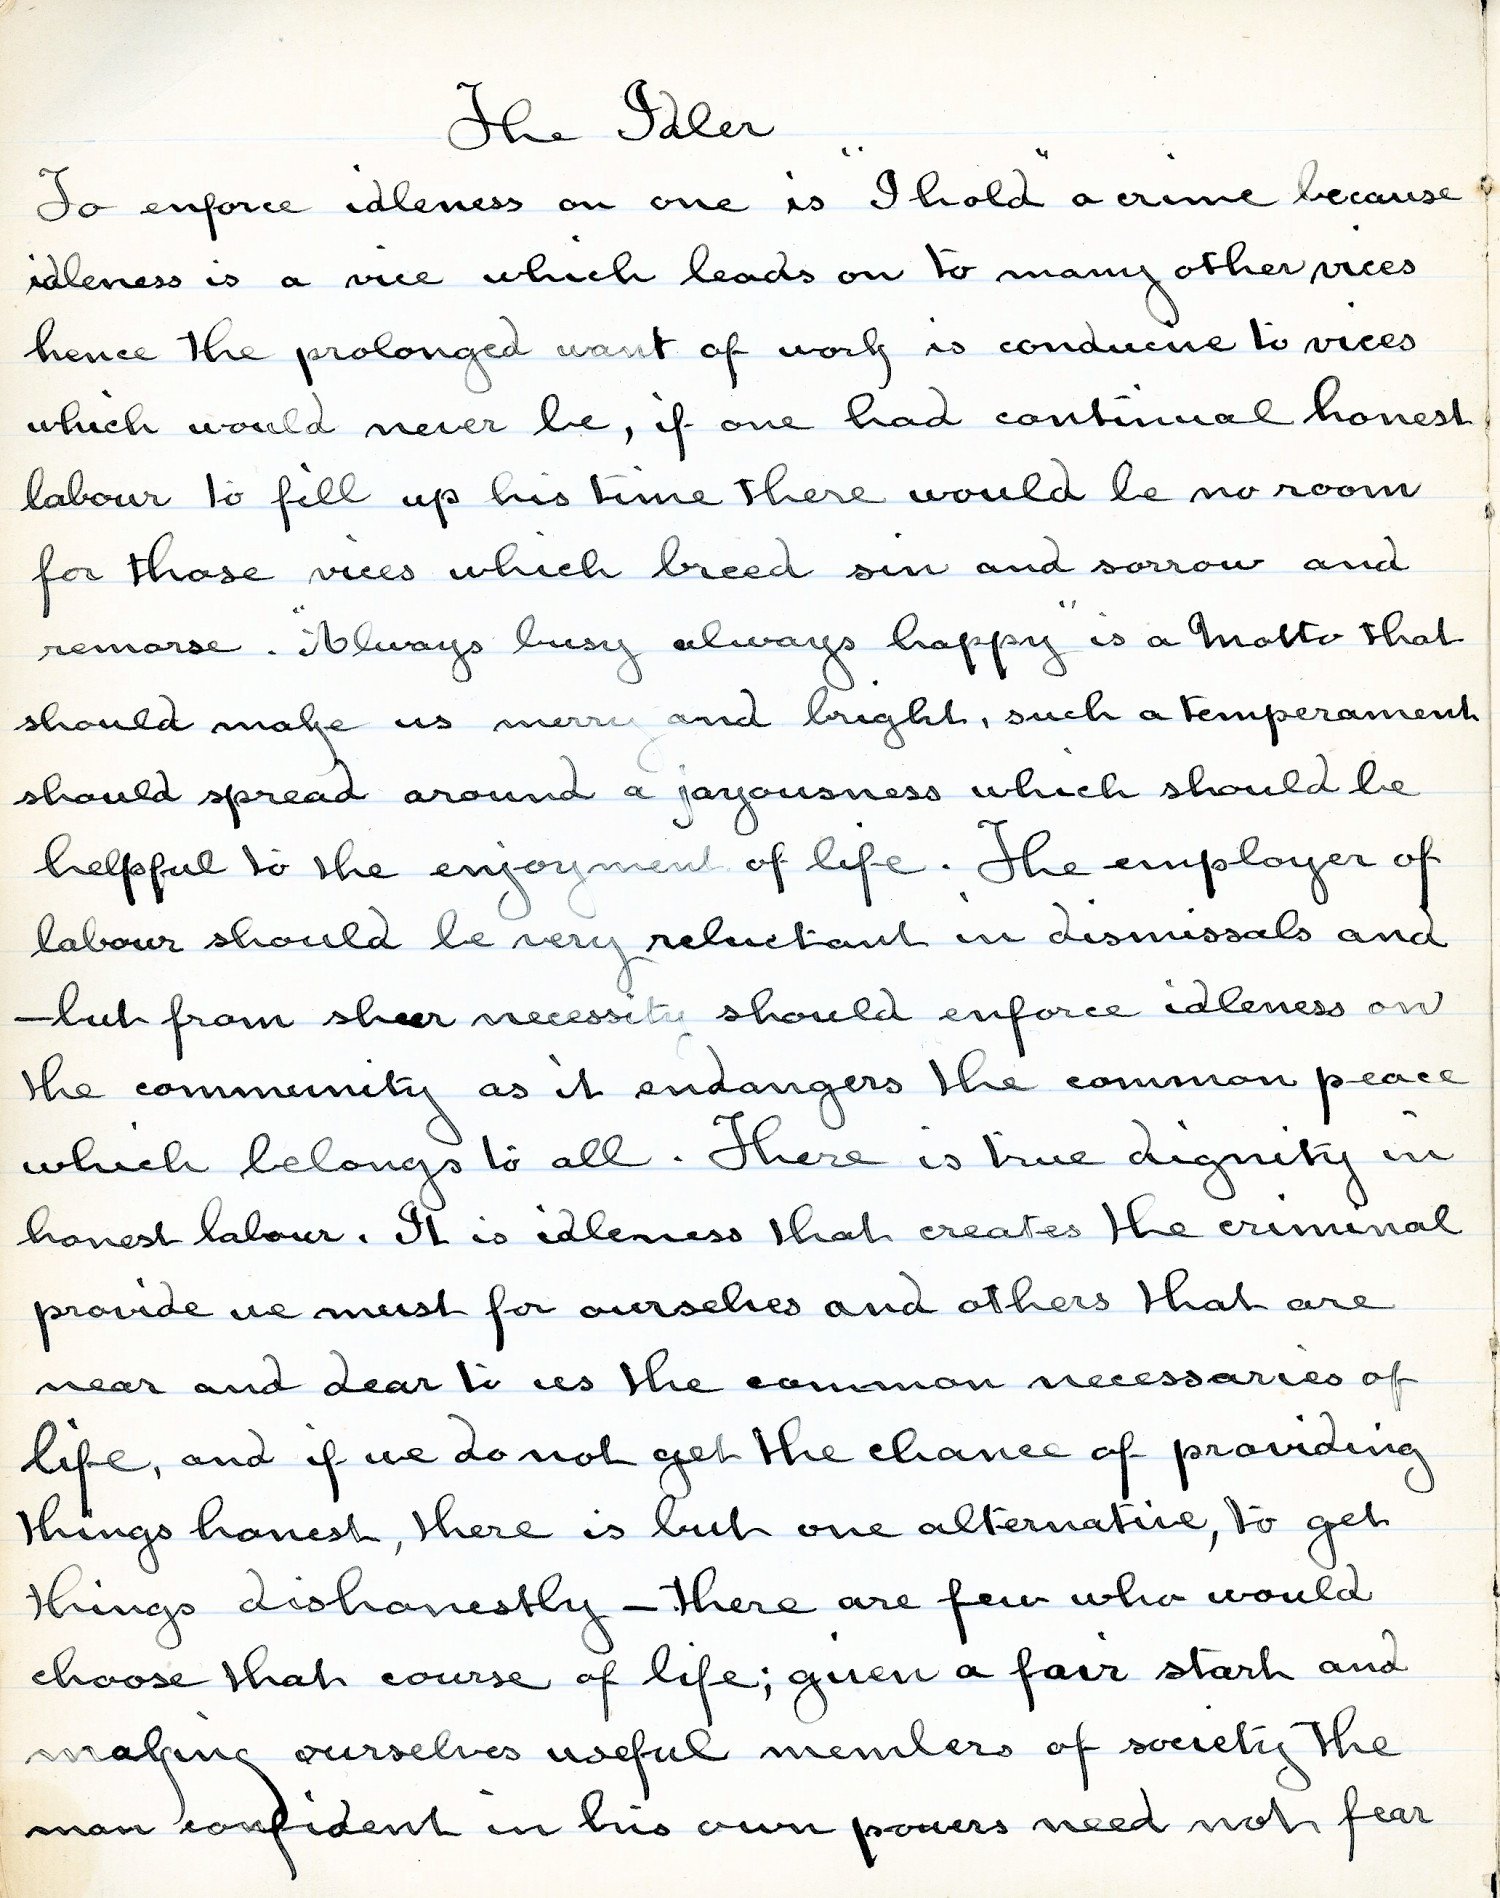 The Idler
To enforce idleness on one is "I hold" a crime because
idleness is a vice which leads on to many other vices
hence the prolonged want of work is conducive to vices
which would never be, if one had continual honest
labour to fill up his time there would be no room
for those vices which breed sin and sorrow and
remorse. "Always busy always happy" is a Motto that
should make us merry and bright, such a temperament
should spread around a joyousness which should be
helpful to the enjoyment of life. The employer of
labour should be very reluctant in dismissals and
—but from sheer necessity should enforce idleness on
the community as it endangers the common peace
which belongs to all. There is true dignity in
honest labour. It is idleness that creates the criminal
provide we must for ourselves and others that are
near and dear to us the common necessaries of
life, and if we do not get the chance of providing
things honest, there is but one alternative, to get
things dishonestly — there are few who would
choose that course of life; given a fair start and
making ourselves useful members of society the
man confident in his own powers need not fear